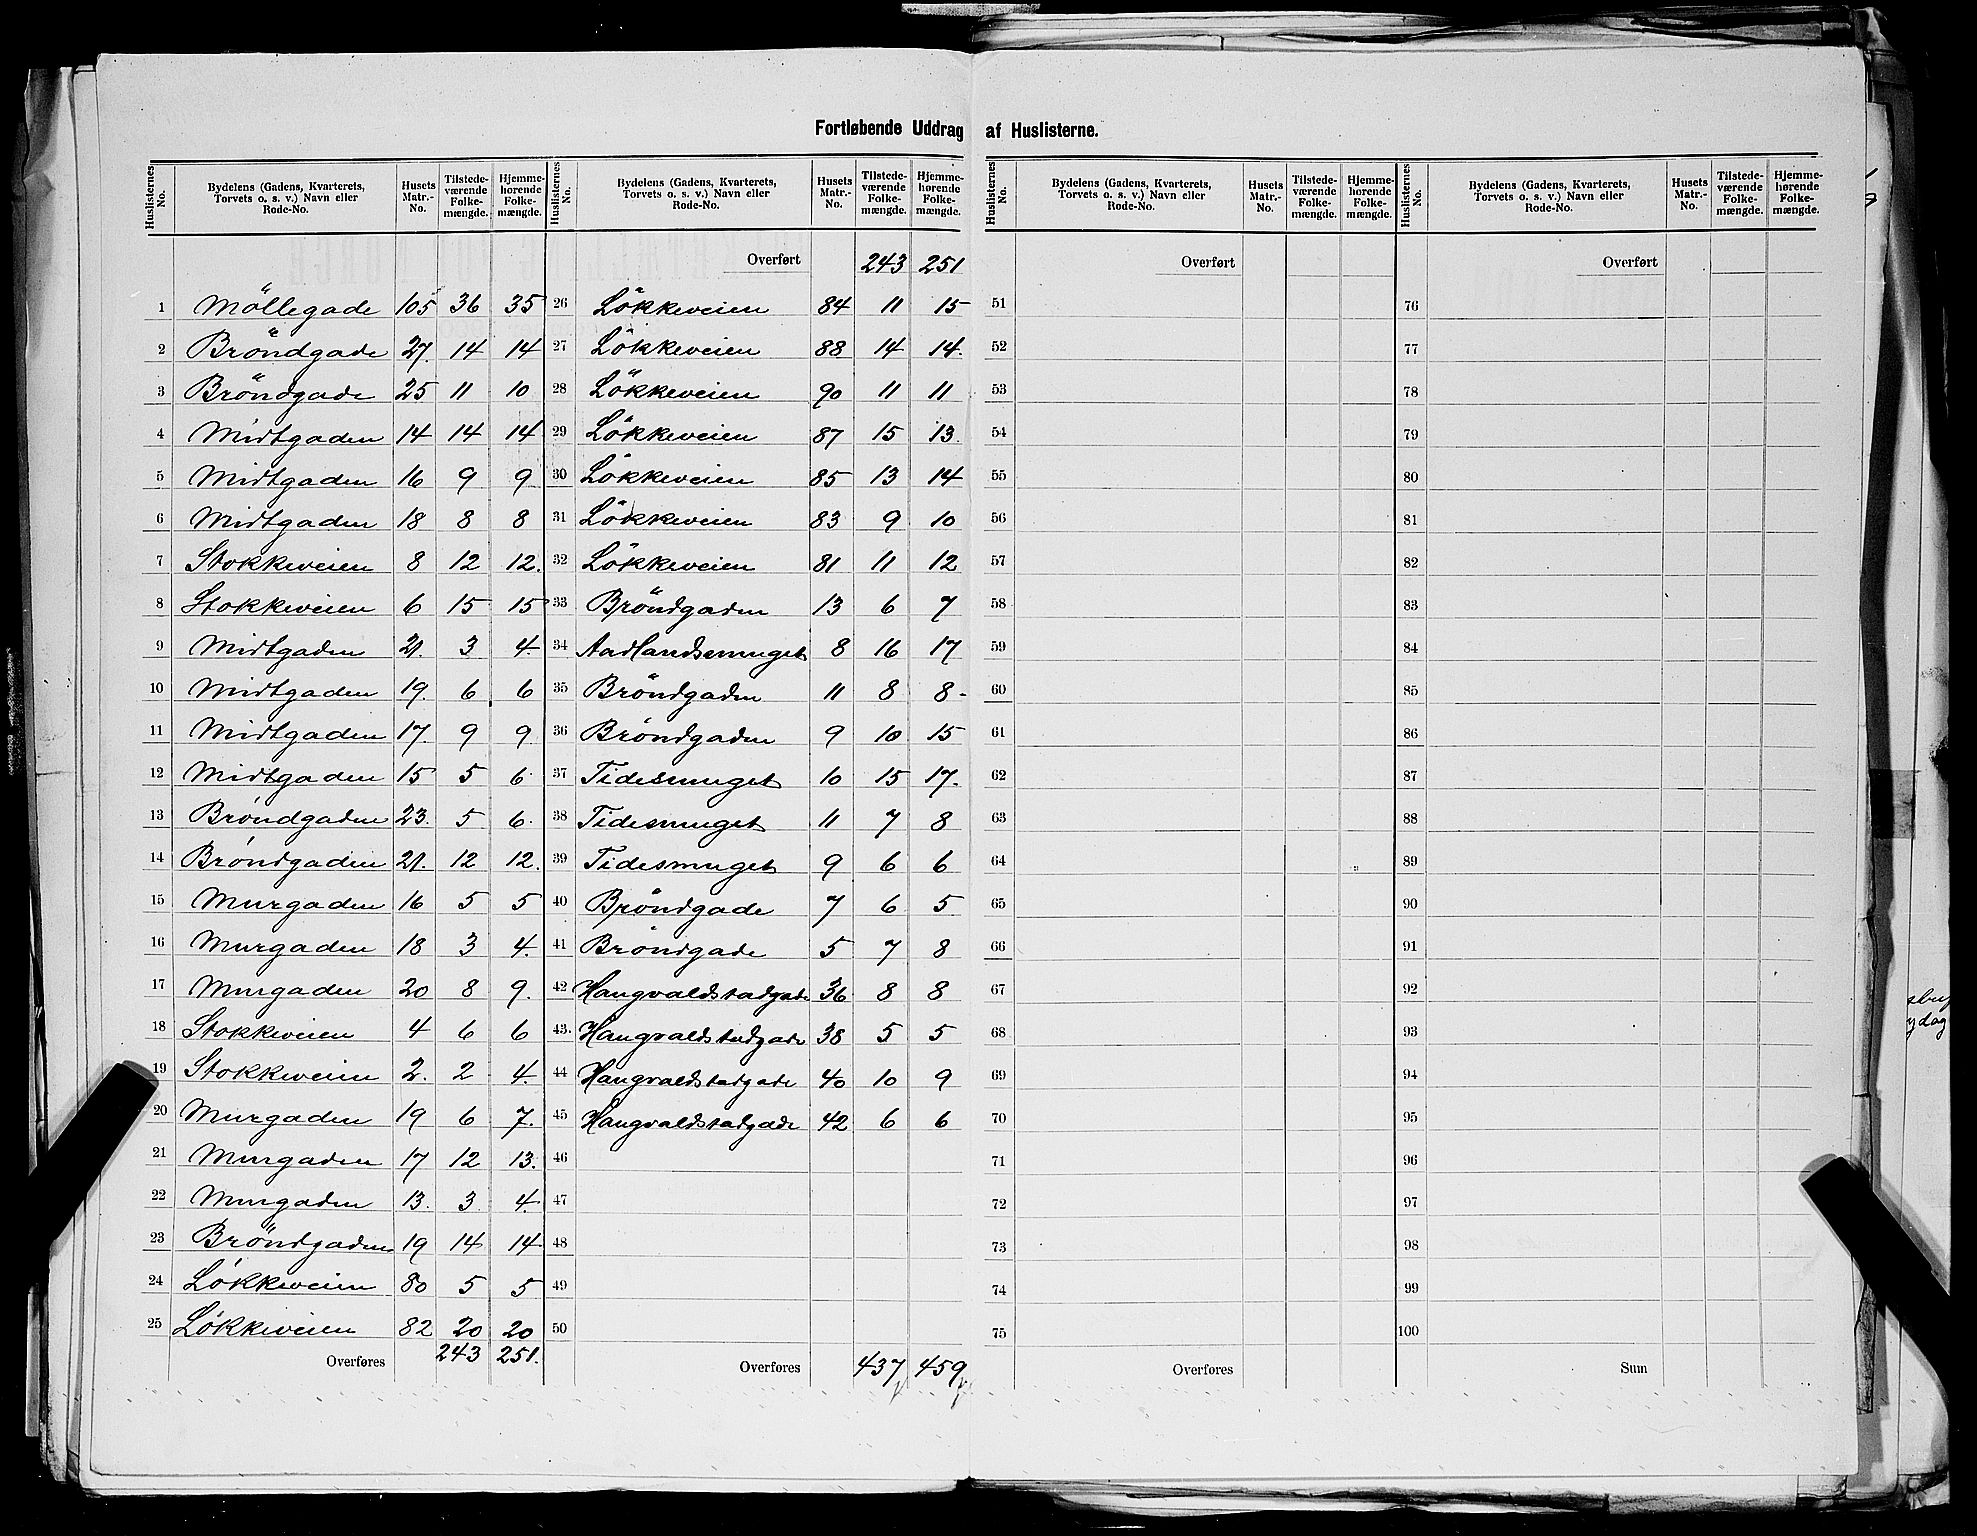 Fortløbende Uddrag af Huslisterne.
Huslisternes No. | Bydelens (Gadens, Kvarterets, Torvets o. s. v.) Navn eller Rode-No. | Husets Matr.-No. | Tilstede-værende Folke-mængde. | Hjemme-hørende Folke-mængde.
1 Möllegade 105 36 35
2 Bröndgade 27. 14 14
3 Bröndgade 25 11 10
4 Midtgaden 14 14 14
5 Midtgaden 16 9 9
6 Midtgaden 18 8 8
7 Stokkeveien 8 12 12.
8 Stokkeveien 6 15 15
9 Midtgaden 21. 3 4.
10 Midtgaden 19. 6 6
11 Midtgaden 17. 9 9
12 Midtgaden 15 5 6
13 Bröndgaden 23. 5 6.
14 Bröndgaden 21. 12 12.
15 Murgaden 16 5 5
16 Murgaden 18 3 4.
17 Murgaden 20 8 9.
18 Stokkeveien 4 6 6
19 Stokkeveien 2. 2 4.
20 Murgaden 19 6 7.
21 Murgaden 17 12 13.
22 Murgaden 13. 3 4.
23 Bröndgaden 19 14 14
24 Lökkeveien 80 5 5
25 Lökkeveien 82 20 20
Overføres 243 251.
Huslisternes No. | Bydelens (Gadens, Kvarterets, Torvets o. s. v.) Navn eller Rode-No. | Husets Matr.-No. | Tilstede-værende Folke-mængde. | Hjemme-hørende Folke-mængde.
Overført 243 251
26 Lökkeveien 84 11 15
27 Lökkeveien 88 14 14.
28 Lökkeveien 90 11 11
29 Lökkeveien 87 15 13.
30 Lökkeveien 85 13 14
31 Lökkeveien 83 9 10
32 Lökkeveien 81 11 12
33 Bröndgaden 13 6 7
34 Aadlandsmuget 8 16 17
35 Bröndgaden 11 8 8-
36 Bröndgaden 9 10 15
37 Tidesmuget 10 15 17.
38 Tidesmuget 11 7 8
39 Tidesmuget 9 6 6
40 Bröndgade 7 6 5
41 Bröndgade 5 7 8
42 Haugvaldstadgade 36 8 8
43. Haugvaldstadgade 38 5 5
44 Haugvaldstadgade 40 10 9
45 Haugvaldstadgade 42 6 6
46
47
48
49
50
Overføres 437 459
Huslisternes No. | Bydelens (Gadens, Kvarterets, Torvets o. s. v.) Navn eller Rode-No. | Husets Matr.-No. | Tilstede-værende Folke-mængde. | Hjemme-hørende Folke-mængde.
Overført
51
52
53
54
55
56
57
58
59
60
61
62
63
64
65
66
67
68
69
70
71
72
73
74
75
Overføres
Huslisternes No. | Bydelens (Gadens, Kvarterets, Torvets o. s. v.) Navn eller Rode-No. | Husets Matr.-No. | Tilstede-værende Folke-mængde. | Hjemme-hørende Folke-mængde.
Overført
76
77
78
79
80
81
82
83
84
85
86
87
88
89
90
91
92
93
94
95
96
97
98
99
100
Sum